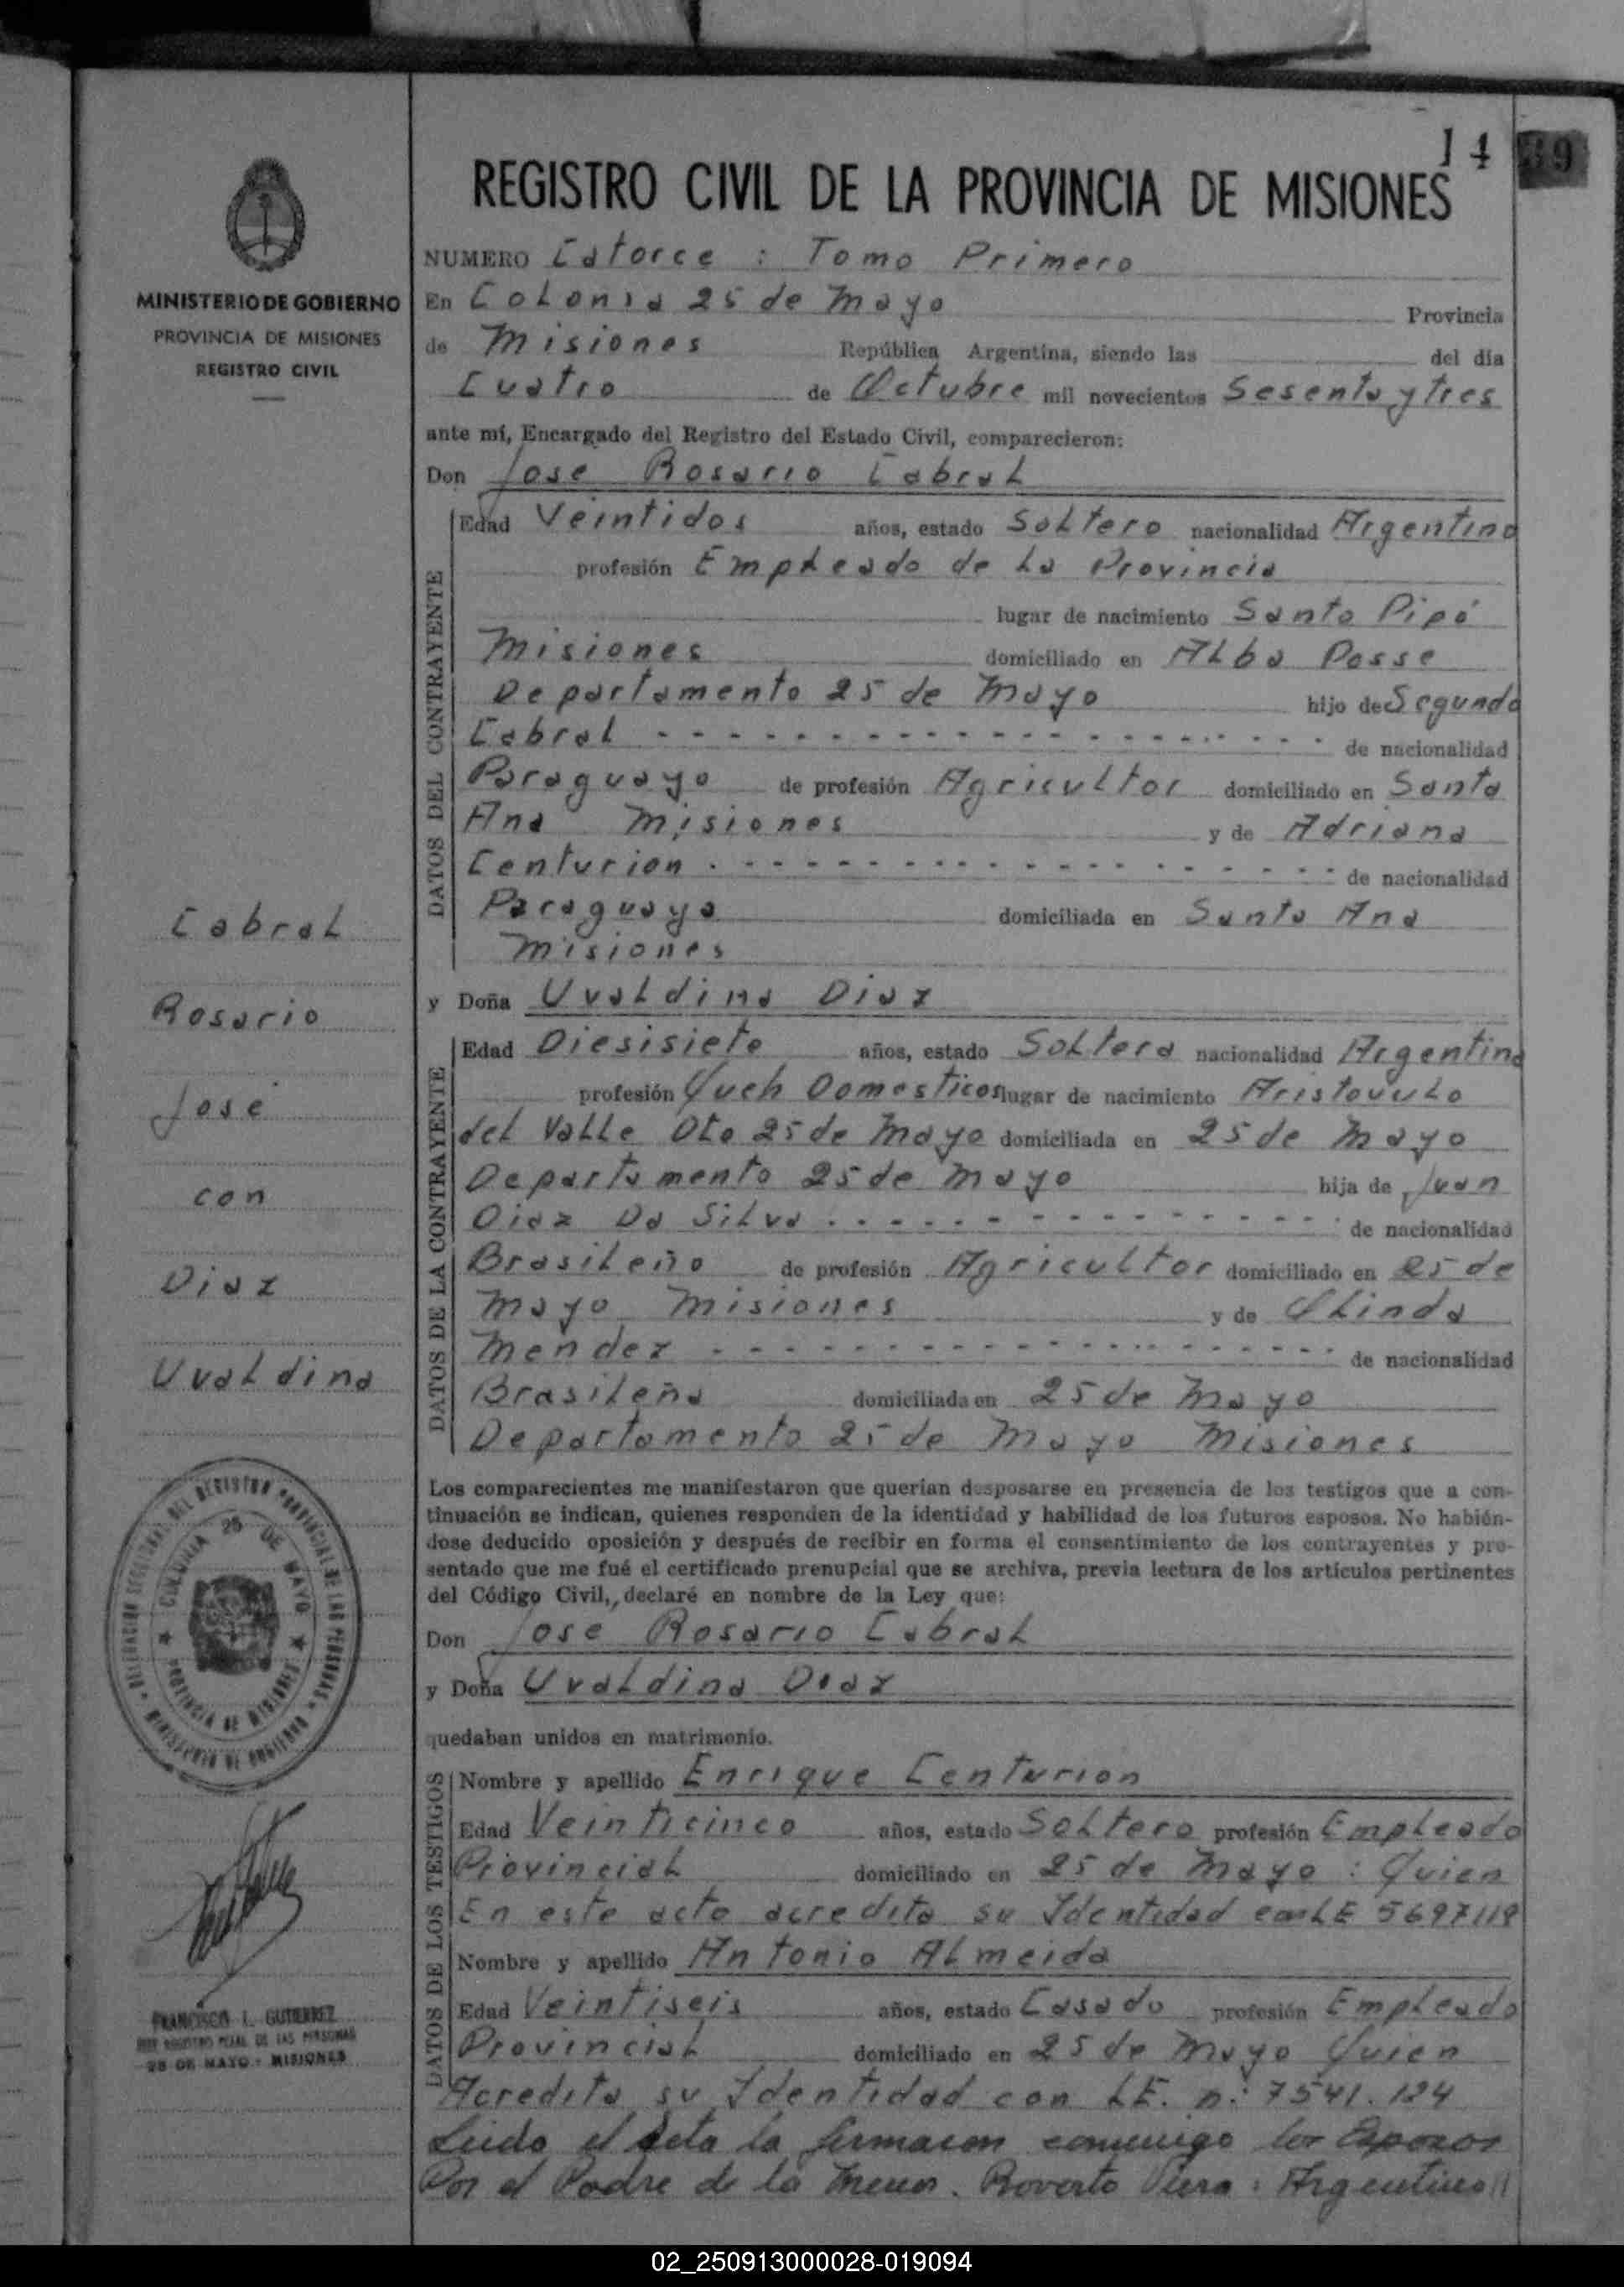 14 39
REGISTRO CIVIL DE LA PROVINCIA DE MISIONES
MINISTERIO DE GOBIERNO
PROVINCIA DE MISIONES
REGISTRO CIVIL
NUMERO Catorce : Tomo Primero
En Colonia 25 de Mayo Provincia
de Misiones República Argentina, siendo las del día
Cuatro de Octubre mil novecientos Sesenta y tres
ante mí, Encargado del Registro del Estado Civil, comparecieron:
Don Jose Rosario Cabral
DATOS DEL CONTRAYENTE
Edad Veintidos años, estado Soltero nacionalidad Argentino
profesión Empleado de La Provincia
lugar de nacimiento Santo Pipó
Misiones domiciliado en Alba Posse
Departamento 25 de Mayo hijo de Segundo
Cabral de nacionalidad
Paraguayo de profesión Agricultor domiciliado en Santa
Ana Misiones y de Adriana
Centurion de nacionalidad
Paraguaya domiciliada en Santa Ana
Misiones
y Doña Uvaldina Diaz
DATOS DE LA CONTRAYENTE
Edad Diesisiete años, estado Soltera nacionalidad Argentina
profesión Queh Domesticos lugar de nacimiento Aristovulo
del Valle Dto 25 de Mayo domiciliada en 25 de Mayo
Departamento 25 de Mayo hija de Juan
Diaz Da Silva de nacionalidad
Brasileño de profesión Agricultor domiciliado en 25 de
Mayo Misiones y de Olinda
Mendez de nacionalidad
Brasileña domiciliada en 25 de Mayo
Departamento 25 de Mayo Misiones
Los comparecientes me manifestaron que querían desposarse en presencia de los testigos que a con-
tinuación se indican, quienes responden de la identidad y habilidad de los futuros esposos. No habién-
dose deducido oposición y después de recibir en forma el consentimiento de los contrayentes y pre-
sentado que me fué el certificado prenupcial que se archiva, previa lectura de los artículos pertinentes
del Código Civil, declaré en nombre de la Ley que:
Don Jose Rosario Cabral
y Doña Uvaldina Diaz
quedaban unidos en matrimonio.
DATOS DE LOS TESTIGOS
Nombre y apellido Enrique Centurion
Edad Veinticinco años, estado Soltero profesión Empleado
Provincial domiciliado en 25 de Mayo : Quien
En este acto acredita su Identidad con LE 5697119
Nombre y apellido Antonio Almeida
Edad Veintiseis años, estado Casado profesión Empleado
Provincial domiciliado en 25 de Mayo Quien
Acredita su Identidad con LE. n: 7541.124
Leida el Acta la firmaron conmigo los Esposos
Por el Padre de la Menor. Roverto Viera : Argentino
Cabral
Rosario
José
con
Diaz
Uvaldina
DELEGACION SECCIONAL DEL REGISTRO PROVINCIAL DE LAS PERSONAS
MINISTERIO DE GOBIERNO
COLONIA 25 DE MAYO
PROVINCIA DE MISIONES
FRANCISCO L. GUTIERREZ
REGISTRO PCIAL DE LAS PERSONAS
25 DE MAYO - MISIONES
02_250913000028-019094